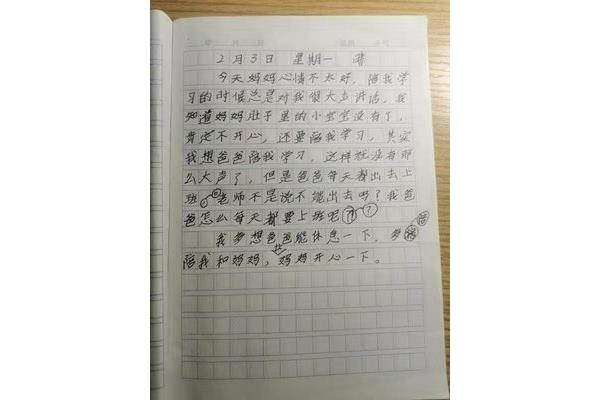 2月3日 星期一 晴
今天妈妈心情不太好，陪我学
习的时候总是对我很大声讲话，我
知道妈妈肚子里的小宝宝没有了，
肯定不开心，还要陪我学习，其实
我想爸爸陪我学习，这样就没有那
么大声了，但是爸爸每天都出去上
班，老师不是说不能出去吗？我爸
爸怎么每天都要上班呢？？
我多想爸爸能休息一下，多陪
陪我和妈妈，让妈妈开心一下。